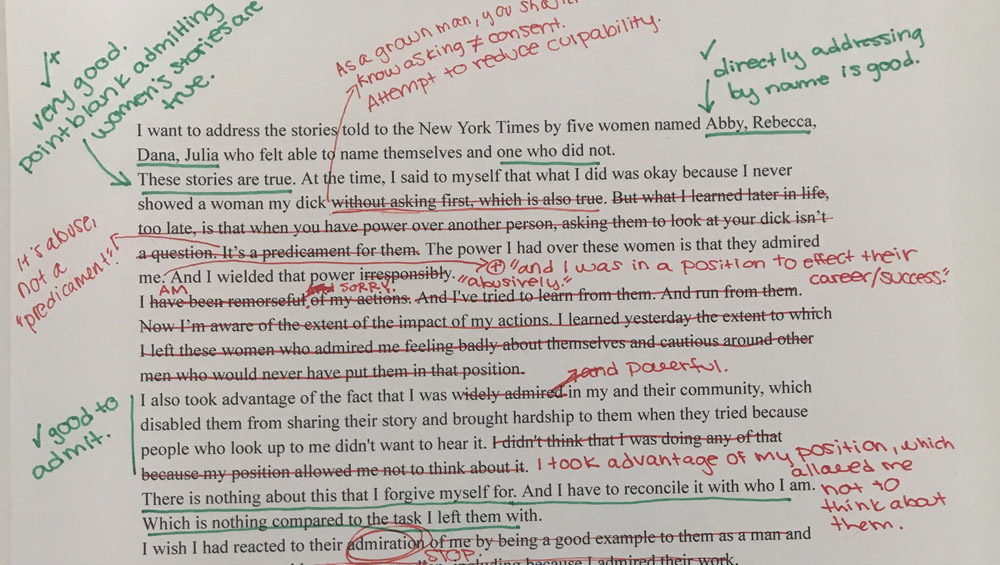 ✓+
very good.
point blank admitting
women's stories are
true.
As a grown man, you
know asking ≠ consent.
Attempt to reduce culpability.
✓ directly addressing
by name is good.
I want to address the stories told to the New York Times by five women named Abby, Rebecca,
Dana, Julia who felt able to name themselves and one who did not.
These stories are true. At the time, I said to myself that what I did was okay because I never
showed a woman my dick without asking first, which is also true. But what I learned later in life,
too late, is that when you have power over another person, asking them to look at your dick isn't
a question. It's a predicament for them. The power I had over these women is that they admired
me. And I wielded that power irresponsibly.
It's abuse,
not a
"predicament"!
+ "and I was in a position to effect their
career/success."
"abusively."
AM
SORRY.
I have been remorseful of my actions. And I've tried to learn from them. And run from them.
Now I'm aware of the extent of the impact of my actions. I learned yesterday the extent to which
I left these women who admired me feeling badly about themselves and cautious around other
men who would never have put them in that position.
and powerful.
I also took advantage of the fact that I was widely admired in my and their community, which
disabled them from sharing their story and brought hardship to them when they tried because
people who look up to me didn't want to hear it. I didn't think that I was doing any of that
because my position allowed me not to think about it.
✓ good to
admit.
I took advantage of my position, which
allowed me
not to
think about
them.
There is nothing about this that I forgive myself for. And I have to reconcile it with who I am.
Which is nothing compared to the task I left them with.
I wish I had reacted to their admiration of me by being a good example to them as a man and
STOP.
including because I admired their work.